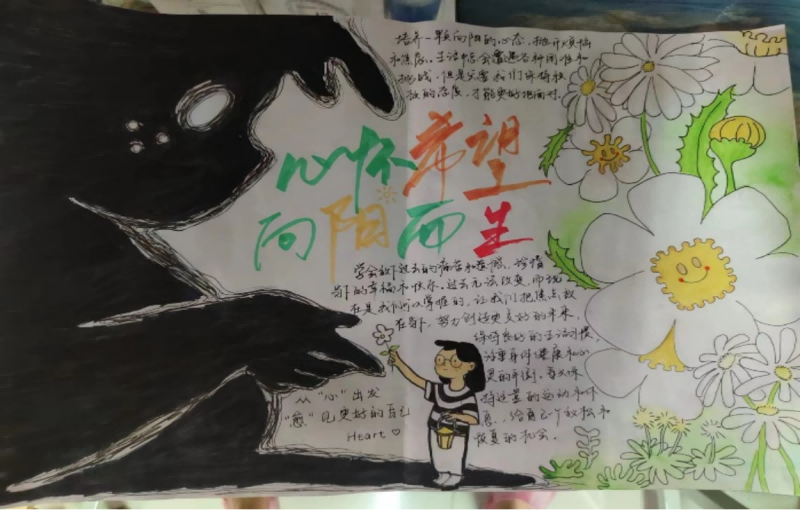 培养一颗向阳的心态，抛开烦恼
和焦虑。生活中会遭遇各种困难和
挑战，但是只要我们保持积
极的态度，才能更好地面对。
心怀希望
向阳而生
学会放下过去的痛苦和遗憾，珍惜
当下的幸福和快乐。过去无法改变，而现
在是我们可以掌握的，让我们把焦点放
在当下，努力创造更美好的未来。
保持良好的生活习惯，
注重身体健康和心
灵的平衡。每天保
持适量的运动和休
息，给自己个放松和
恢复的机会。
从“心”出发
“愈”见更好的自己
Heart♡